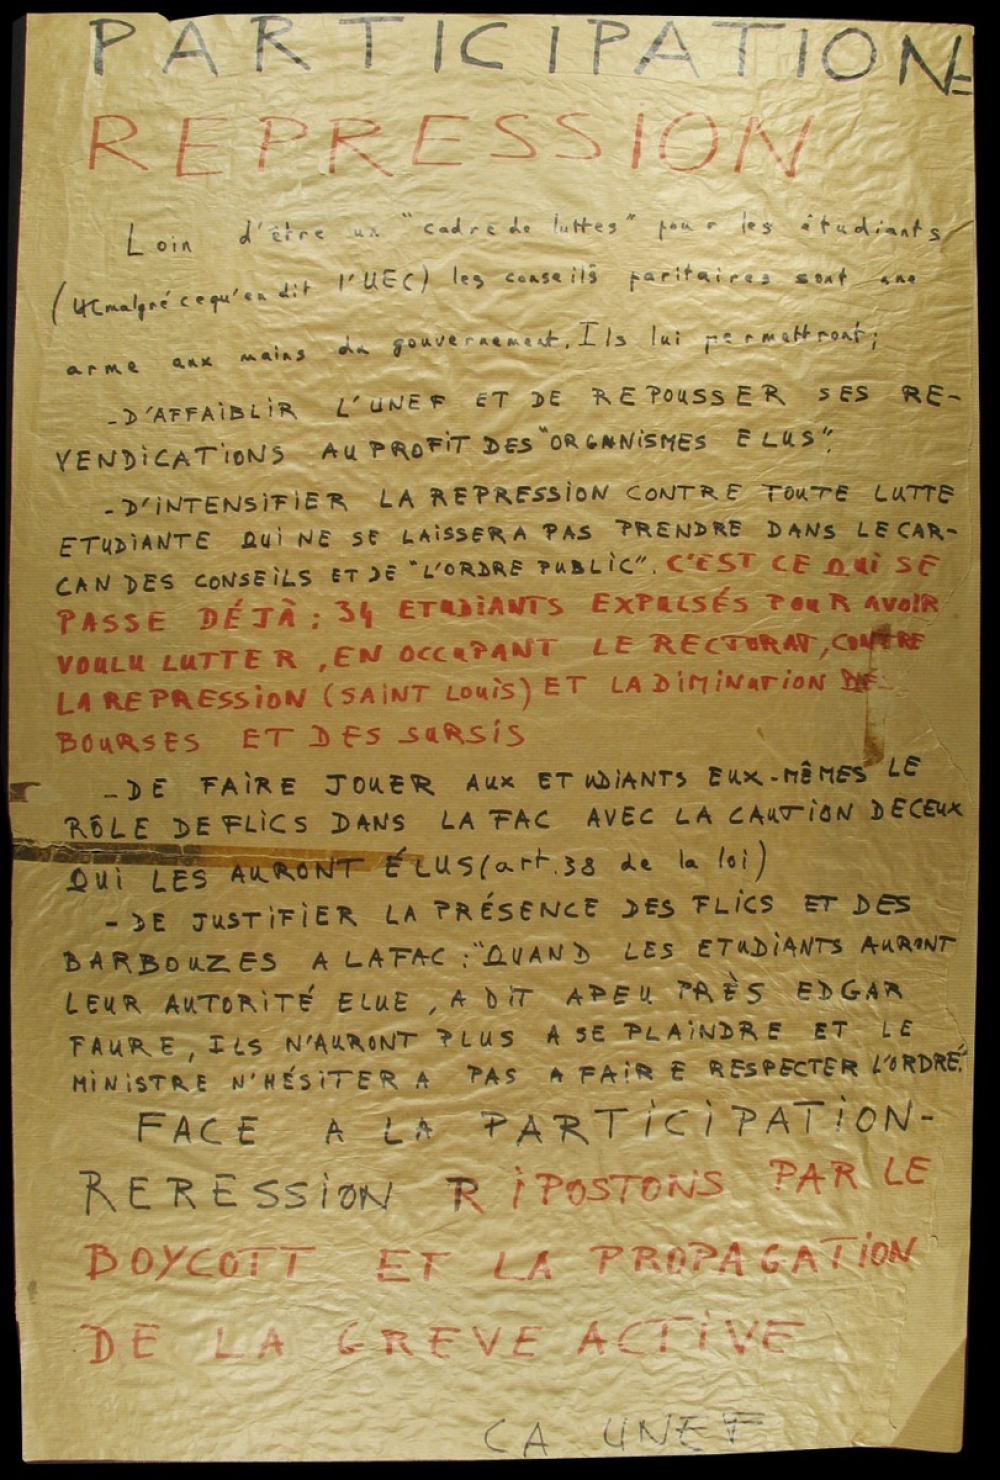 PARTICIPATION=
REPRESSION
Loin d'être un "cadre de luttes" pour les étudiants
(malgré ce qu'en dit l'UEC) les conseils paritaires sont une
arme aux mains du gouvernement. Ils lui permettront;
-D'AFFAIBLIR L'UNEF ET DE REPOUSSER SES RE-
VENDICATIONS AU PROFIT DES "ORGANISMES ELUS".
-D'INTENSIFIER LA REPRESSION CONTRE TOUTE LUTTE
ETUDIANTE QUI NE SE LAISSERA PAS PRENDRE DANS LE CAR-
CAN DES CONSEILS ET DE "L'ORDRE PUBLIC". C'EST CE QUI SE
PASSE DÉJÀ : 34 ETUDIANTS EXPULSÉS POUR AVOIR
VOULU LUTTER, EN OCCUPANT LE RECTORAT, CONTRE
LA REPRESSION (SAINT LOUIS) ET LA DIMINUTION DE
BOURSES ET DES SURSIS
-DE FAIRE JOUER AUX ETUDIANTS EUX-MÊMES LE
RÔLE DE FLICS DANS LA FAC AVEC LA CAUTION DE CEUX
QUI LES AURONT ÉLUS (art.38 de la loi)
-DE JUSTIFIER LA PRÉSENCE DES FLICS ET DES
BARBOUZES A LA FAC : "QUAND LES ETUDIANTS AURONT
LEUR AUTORITÉ ELUE, A DIT A PEU PRÈS EDGAR
FAURE, ILS N'AURONT PLUS A SE PLAINDRE ET LE
MINISTRE N'HÉSITERA PAS A FAIRE RESPECTER L'ORDRE".
FACE A LA PARTICIPATION-
RERESSION RIPOSTONS PAR LE
BOYCOTT ET LA PROPAGATION
DE LA GREVE ACTIVE
CA UNEF